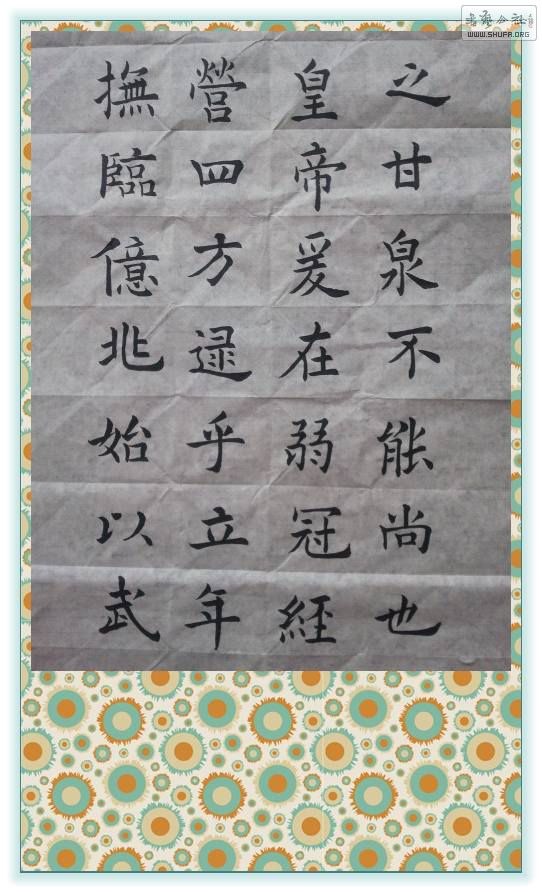 之甘泉不能尚也
皇帝爰在弱冠經
營四方逯乎立年
撫臨億兆始以武
書藝公社
WWW.SHUFA.ORG